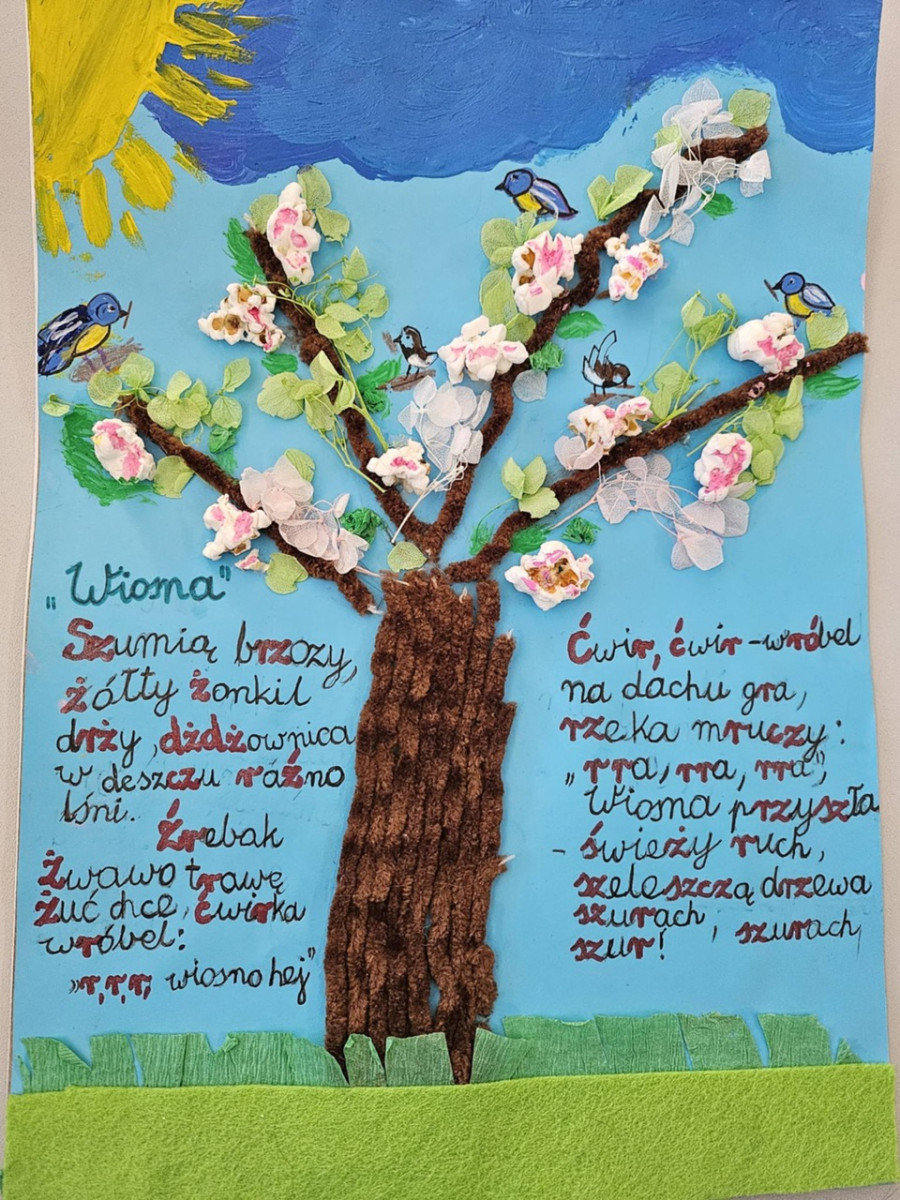 „Wiosna"
Szumią brzozy,
żółty żonkil
drży, dżdżownica
w deszczu raźno
lśni.
Źrebak
Żwawo trawę
żuć chce, ćwirka
wróbel:
„r, r, r, wiosno hej"
Ćwir, ćwir - wróbel
na dachu gra,
rzeka mruczy:
„rra, rra, rra",
Wiosna przyszła
- świeży ruch,
szeleszczą drzewa
szurach, szurach,
szur!